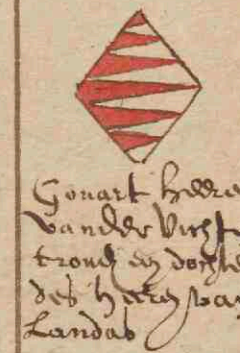 Gouart heere
vander Vichte
troud en dochte
des heeren van
Landas